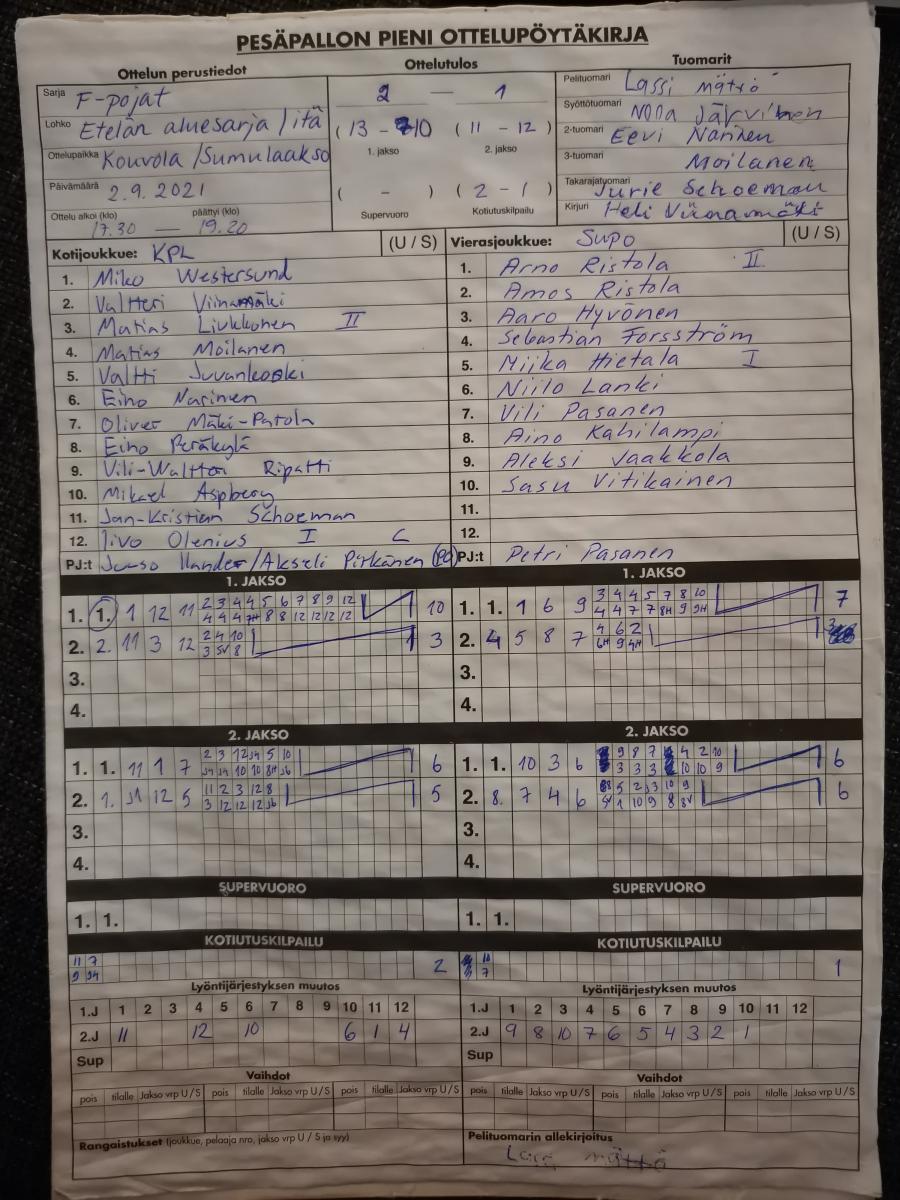 PESÄPALLON PIENI OTTELUPÖYTÄKIRJA
Ottelun perustiedot
Ottelutulos
Tuomarit
Sarja F-pojat
2 — 1
Pelituomari Lassi Mättö
Lohko Etelän aluesarja / itä
(13 - 10) (11 - 12)
Syöttötuomari Nolla Järvinen
1. jakso 2. jakso
2-tuomari Eevi Narinen
Ottelupaikka Kouvola / Sumulaakso
3-tuomari Moilanen
Päivämäärä 2.9.2021
( - ) (2 - 1)
Takarajatuomari Jurie Schoeman
Ottelu alkoi (klo) päättyi (klo)
17.30 — 19.20
Supervuoro Kotiutuskilpailu
Kirjuri Heli Viinamäki
Kotijoukkue: KPL (U / S)
Vierasjoukkue: SuPo (U / S)
1. Miko Westersund
2. Valtteri Viinamäki
3. Matias Liukkonen II
4. Matias Moilanen
5. Valtti Juvankoski
6. Eino Narinen
7. Oliver Mäki-Patola
8. Eino Peräkylä
9. Vili-Waltteri Ripatti
10. Mikael Aspberg
11. Jan-Kristian Schoeman
12. Iivo Olenius I C
PJ:t Juuso Ilander/Akseli Pirkänen (PO)
1. Arno Ristola II
2. Amos Ristola
3. Aaro Hyvönen
4. Sebastian Forsström
5. Miika Hietala I
6. Niilo Lanki
7. Vili Pasanen
8. Aino Kahilampi
9. Aleksi Jaakkola
10. Sasu Vitikainen
11.
12.
PJ:t Petri Pasanen
1. JAKSO
1. 1. 1 12 11 2 3 4 4 5 6 7 8 9 12 10
4 4 4 7H 8 8 12 12 12 12
2. 2. 11 3 12 2 4 10 3
3 5V 8
3.
4.
1. JAKSO
1. 1. 1 6 9 3 4 4 5 7 8 10 7
4 4 7 7 8H 9 9H
2. 4 5 8 7 4 6 2 3
6H 9 4H
3.
4.
2. JAKSO
1. 1. 11 1 7 2 3 12 5 10 6
10 10 8H
2. 1. 12 5 11 2 3 12 8 5
3 12 12 12
3.
4.
2. JAKSO
1. 1. 10 3 6 9 8 7 4 2 10 6
3 3 3 10 10 9
2. 8. 7 4 6 5 2 3 10 9 6
5V 1 10 9 8 8V
3.
4.
SUPERVUORO
1. 1.
SUPERVUORO
1. 1.
KOTIUTUSKILPAILU
11 7 2
9
KOTIUTUSKILPAILU
10 1
7
Lyöntijärjestyksen muutos
1.J 1 2 3 4 5 6 7 8 9 10 11 12
2.J 11 12 10 6 1 4
Sup
Lyöntijärjestyksen muutos
1.J 1 2 3 4 5 6 7 8 9 10 11 12
2.J 9 8 10 7 6 5 4 3 2 1
Sup
Vaihdot
pois tilalle Jakso vrp U / S pois tilalle Jakso vrp U / S pois tilalle Jakso vrp U / S
Vaihdot
pois tilalle Jakso vrp U / S pois tilalle Jakso vrp U / S pois tilalle Jakso vrp U / S
Rangaistukset (joukkue, pelaaja nro, jakso vrp U / S ja syy)
Pelituomarin allekirjoitus
Lassi Mättö